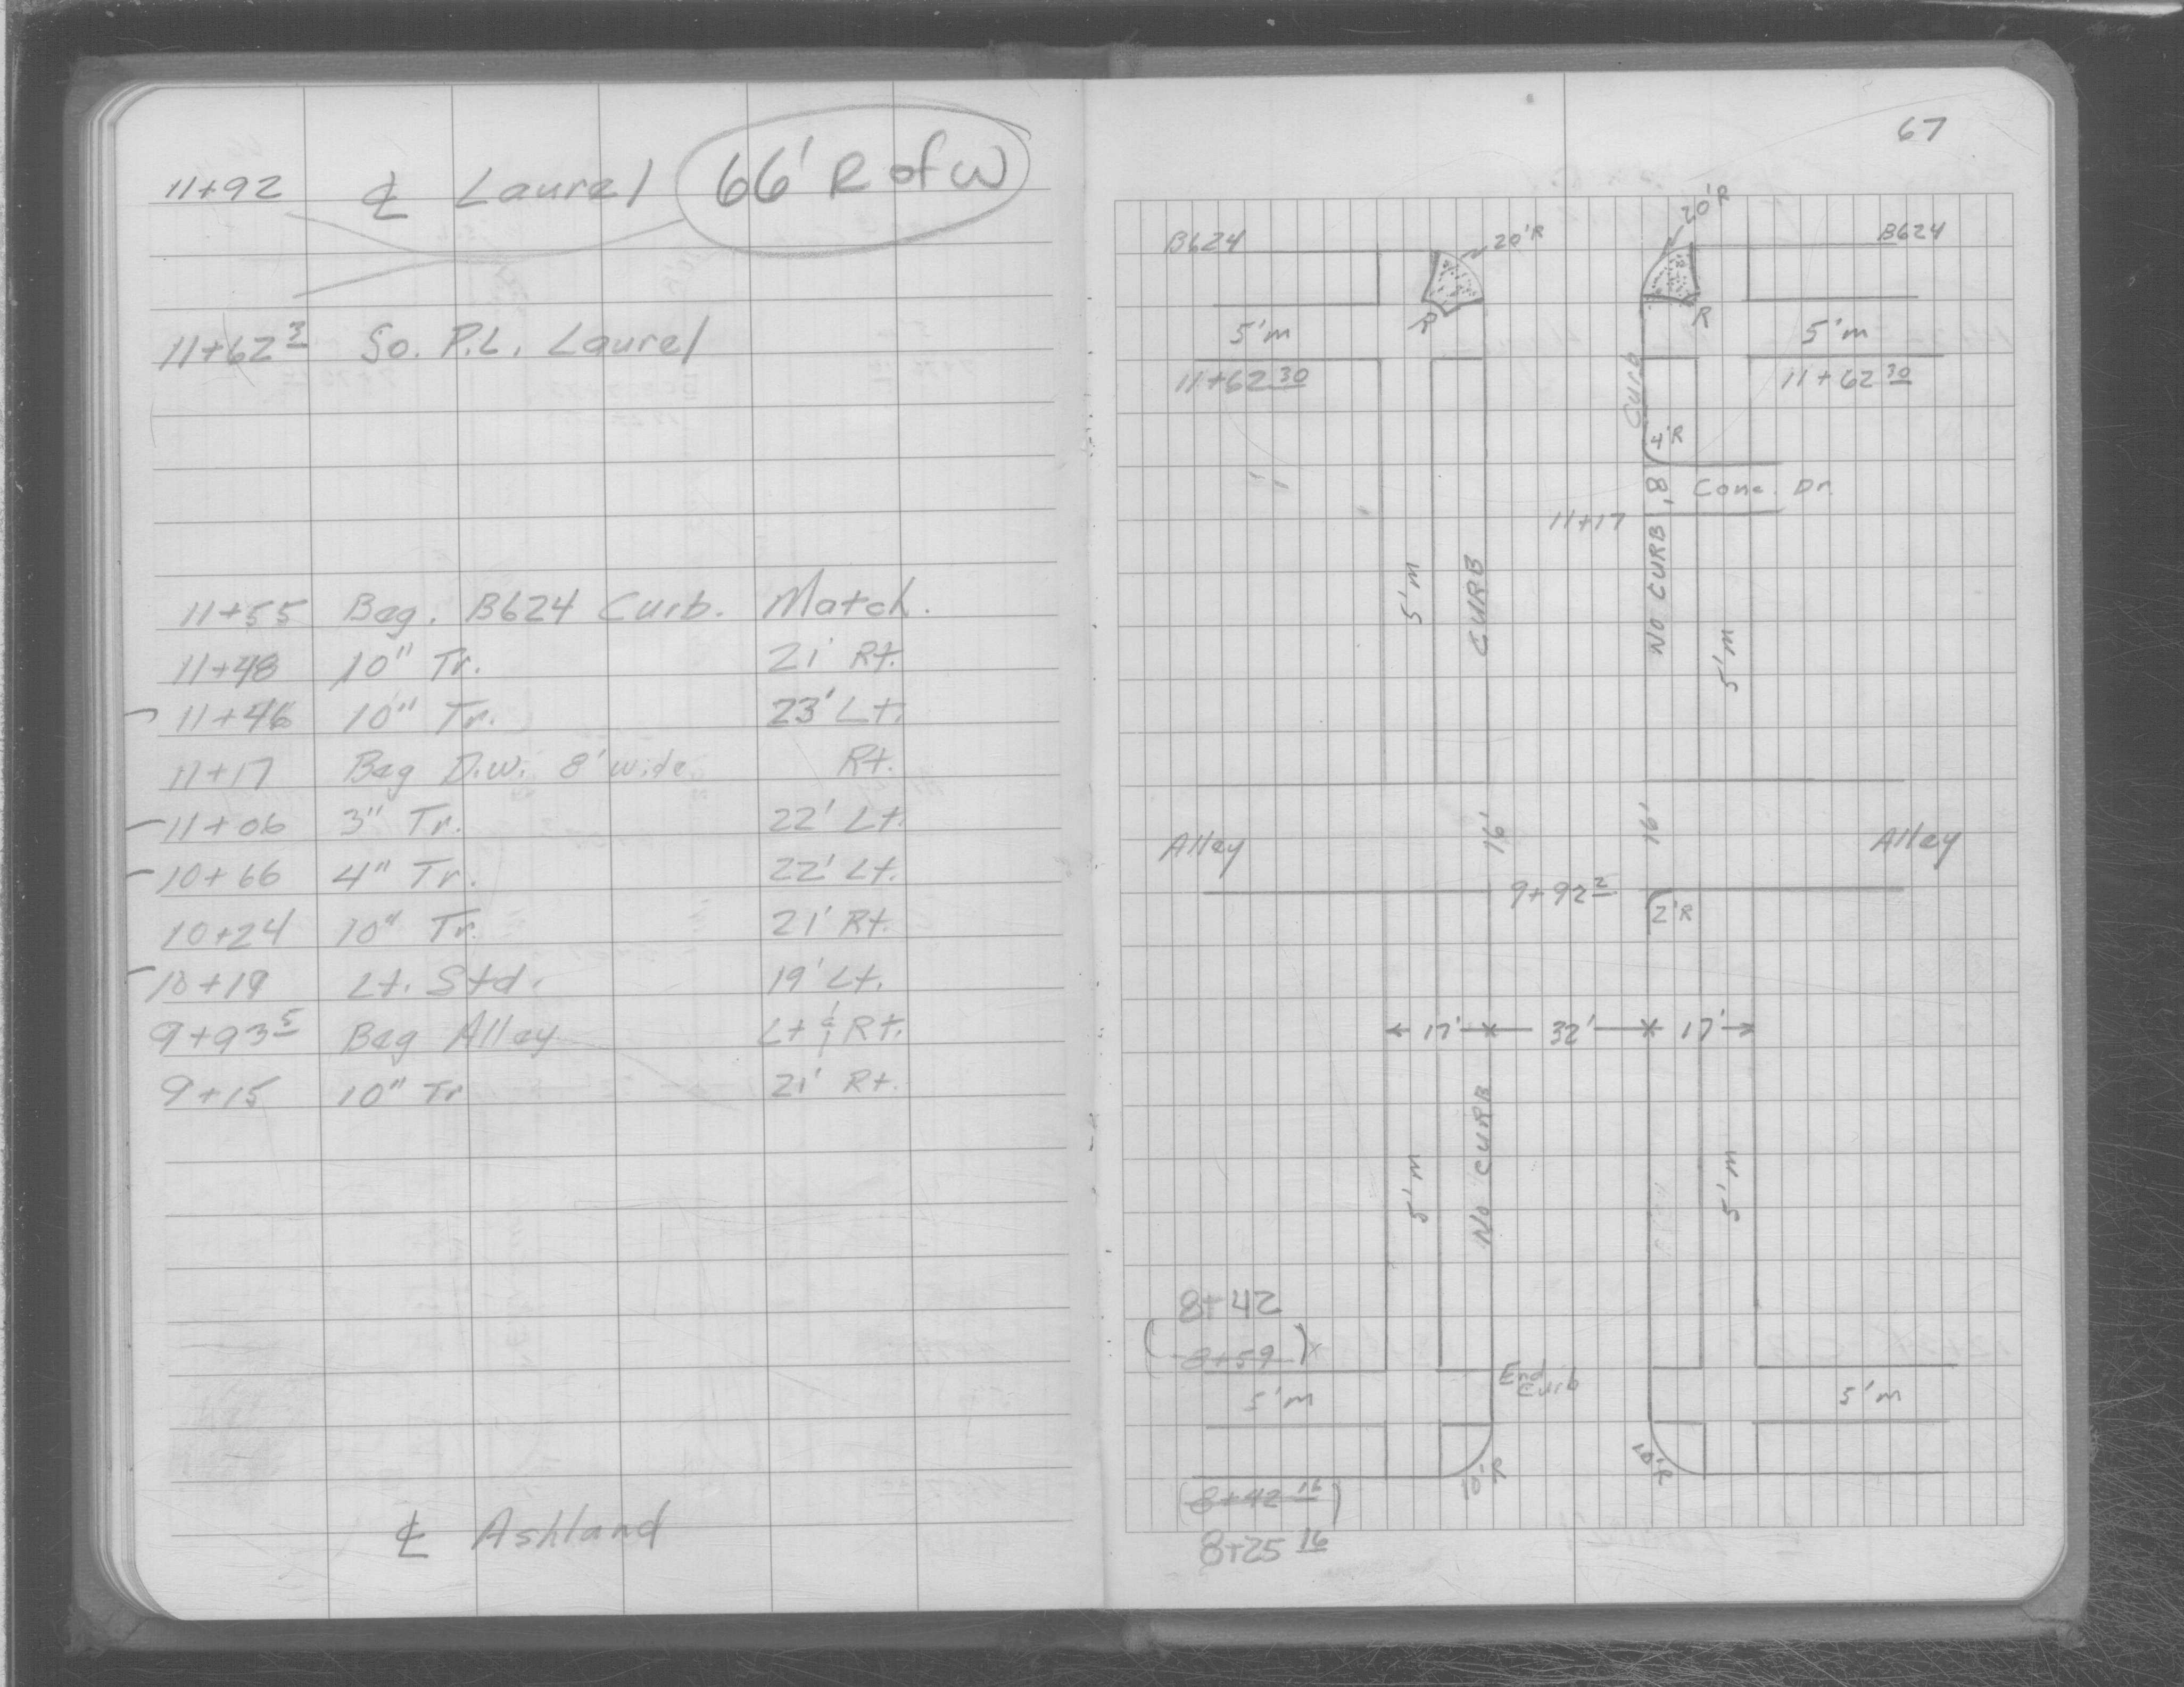 11+92 ℄ Laurel 66' R of W
11+62 3 So. P.L. Laurel
11+55 Beg. B624 Curb. Match.
11+48 10" Tr. 21' Rt.
11+46 10" Tr. 23' Lt.
11+17 Beg D.W. 8' wide Rt.
11+06 3" Tr. 22' Lt.
10+66 4" Tr. 22' Lt.
10+24 10" Tr. 21' Rt.
10+19 Lt. Std. 19' Lt.
9+93 5 Beg Alley Lt & Rt.
9+15 10" Tr 21' Rt.
℄ Ashland
67
20'R
B624 20'R B624
R R
5'm 5'm
11+62 30 Curb 11+62 30
4'R
8' Conc. Dr.
11+17
5'm CURB NO CURB 5'm
16' 16'
Alley Alley
9+92 2 2'R
17' 32' 17'
5'm NO CURB 5'm
8+42
(8+59)x
End
Curb
5'm 5'm
10'R 10'R
(8+42 16)
8+25 16